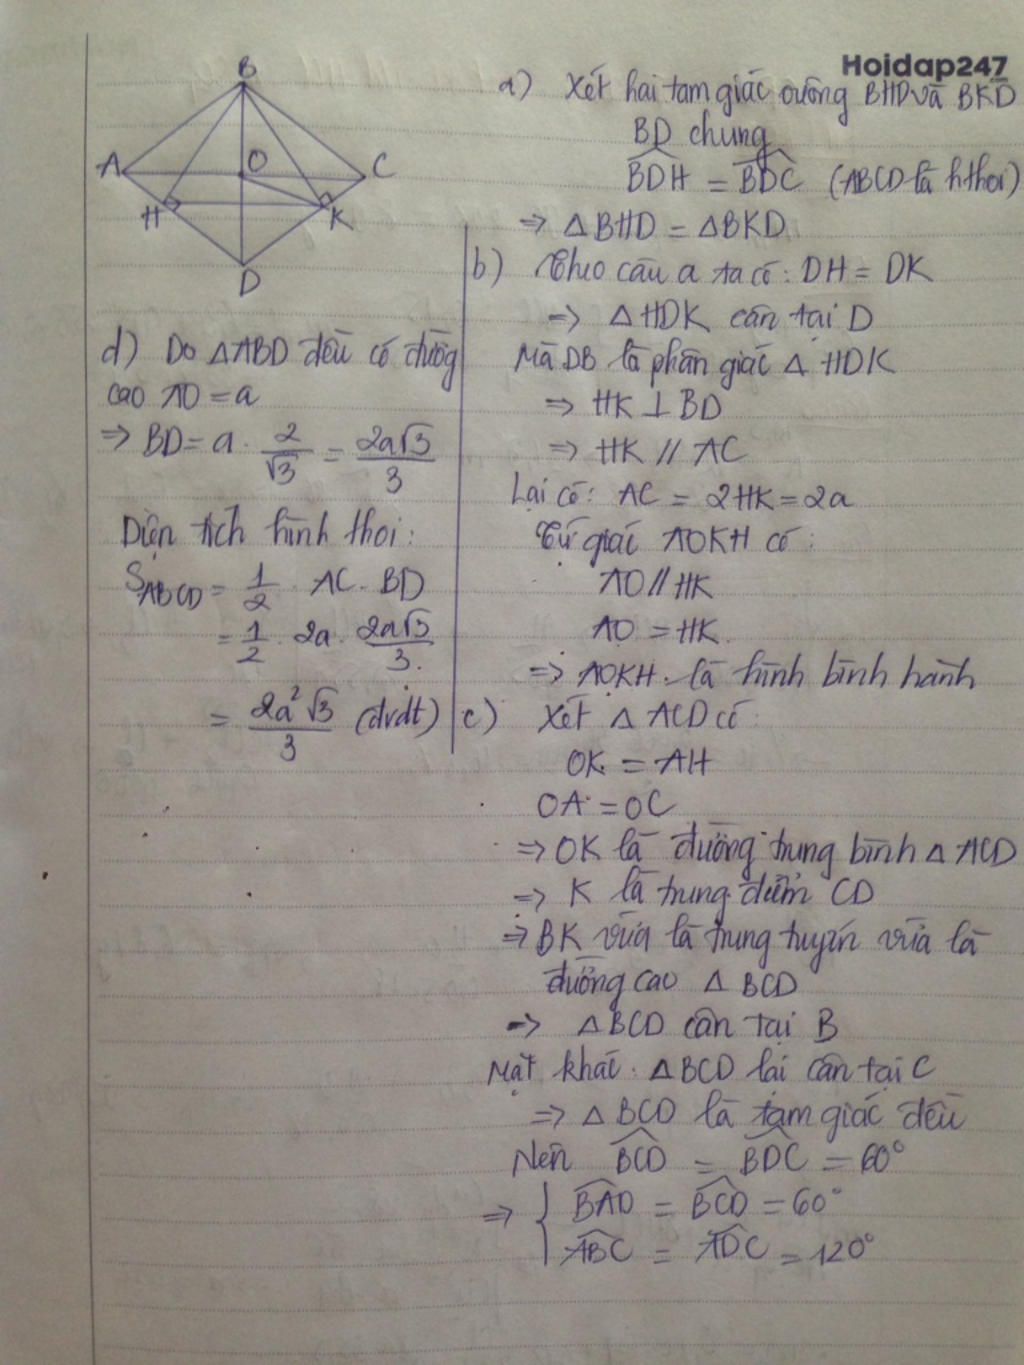 Hoidap247
B
A
O
C
H
K
D
a) Xét hai tam giác vuông BHD và BKD
BD chung
BDH = BDC (ABCD là h thoi)
⇒ △BHD = △BKD
b) Theo câu a ta có: DH = DK
⇒ △HDK cân tại D
Mà DB là phân giác △ HDK
⇒ HK ⊥ BD
⇒ HK // AC
Lại có: AC = 2HK = 2a
Tứ giác AOKH có:
AO // HK
AO = HK
⇒ AOKH là hình bình hành
c) Xét △ ACD có:
OK = AH
OA = OC
⇒ OK là đường trung bình △ ACD
⇒ K là trung điểm CD
⇒ BK vừa là trung tuyến vừa là
đường cao △ BCD
⇒ △BCD cân tại B
Mặt khác: △BCD lại cân tại C
⇒ △BCD là tam giác đều
Nên BCD = BDC = 60°
⇒ { BAD = BCD = 60°
ABC = ADC = 120°
d) Do △ABD đều có đường
cao AO = a
⇒ BD = a . 2/√3 = 2a√3/3
Diện tích hình thoi:
S ABCD = 1/2 . AC . BD
= 1/2 . 2a . 2a√3/3
= 2a²√3/3 (đvdt)